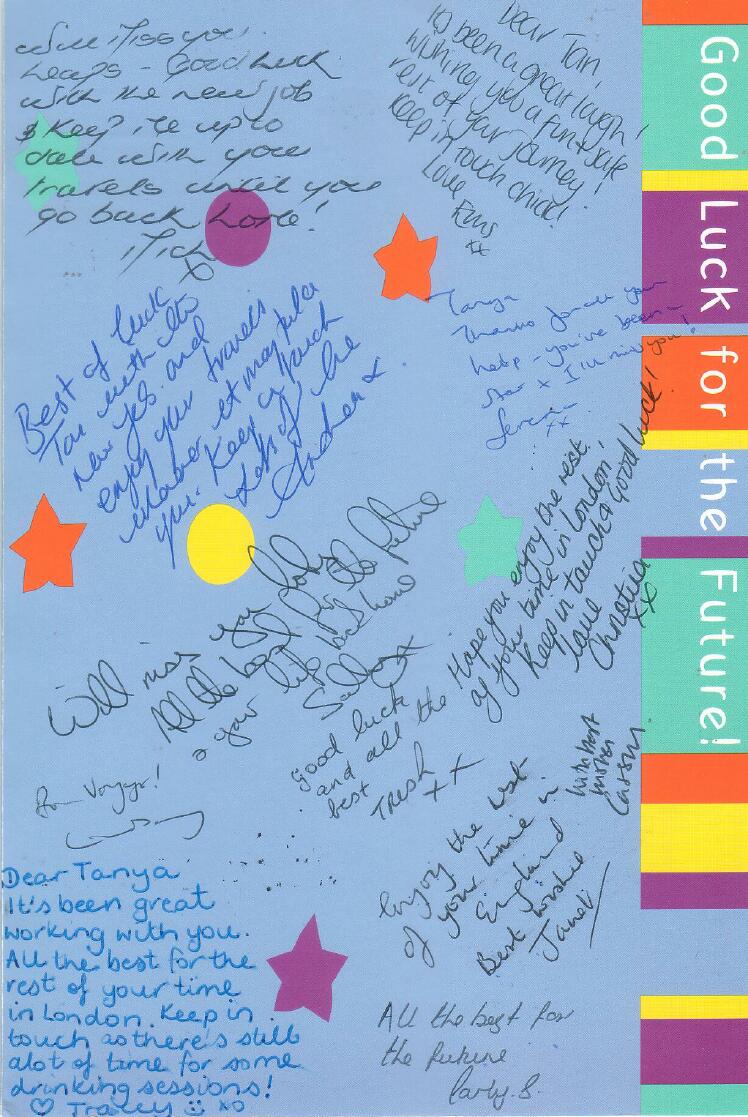 Good Luck for the Future!
Will miss you
heaps - Good luck
with the new job
& Keep me up to
date with your
travels until you
go back home!
Mich
x
Dear Tan,
It's been a great laugh!
wishing you a fun & safe
rest of your journey!
Keep in touch chick!
Love
xx
Best of luck
Tan with the
new job and
enjoy your travels
whatever it may take
you. Keep in touch
Lots of love
Andrea x
Tanya
Thanks for all your
help - you've been a
star x I'll miss you!
xx
Hope you enjoy the rest
of your time in London,
Keep in touch & Good Luck!
Love
Christina
xx
Will miss you
All the best for the future
& your life back home
Sally x
good luck
and all the
best
Trish x x
With best
wishes
Bon Voyage!
Enjoy the rest
of your time in
England
Best wishes
Janet
Dear Tanya
It's been great
working with you.
All the best for the
rest of your time
in London. Keep in
touch as there's still
alot of time for some
drinking sessions!
♡ Tracey ☺ xo
All the best for
the future